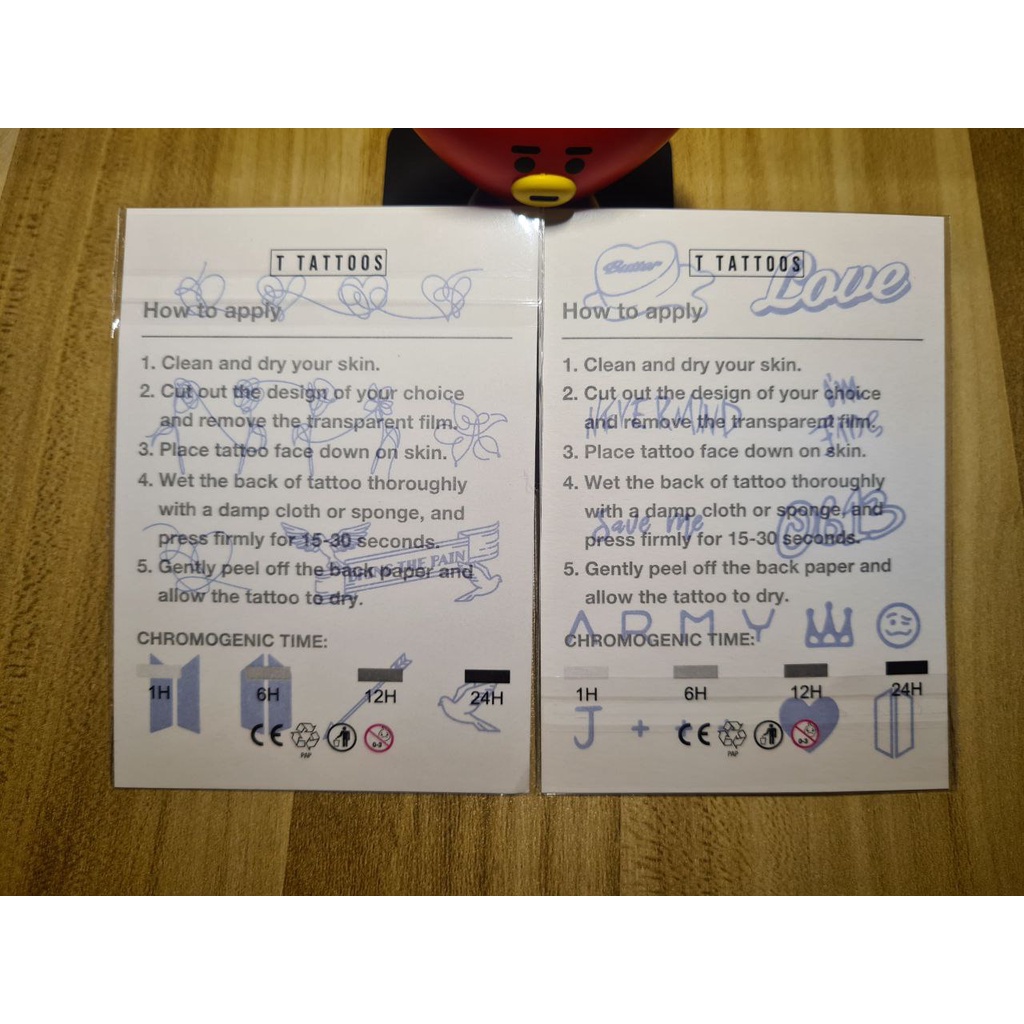 T TATTOOS
How to apply
1. Clean and dry your skin.
2. Cut out the design of your choice
and remove the transparent film.
3. Place tattoo face down on skin.
4. Wet the back of tattoo thoroughly
with a damp cloth or sponge, and
press firmly for 15-30 seconds.
THE PAIN
5. Gently peel off the back paper and
allow the tattoo to dry.
CHROMOGENIC TIME:
1H 6H 12H 24H
CE
PAP
0-3
Butter
T TATTOOS
Love
How to apply
1. Clean and dry your skin.
2. Cut out the design of your choice
I'm
NEVERMIND
and remove the transparent film.
Fine
3. Place tattoo face down on skin.
4. Wet the back of tattoo thoroughly
with a damp cloth or sponge, and
Save me
press firmly for 15-30 seconds.
5. Gently peel off the back paper and
allow the tattoo to dry.
ARMY
CHROMOGENIC TIME:
1H 6H 12H 24H
J +
CE
PAP
0-3